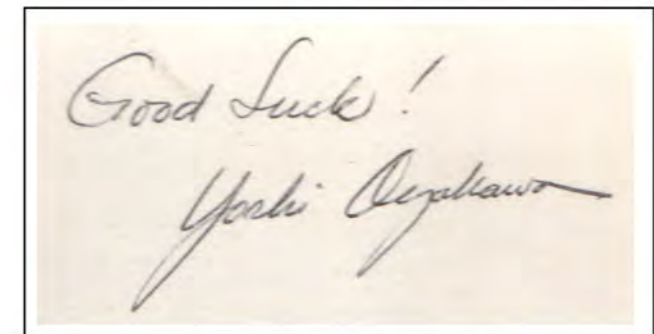 Good Luck!
Yoshi Oyakawa